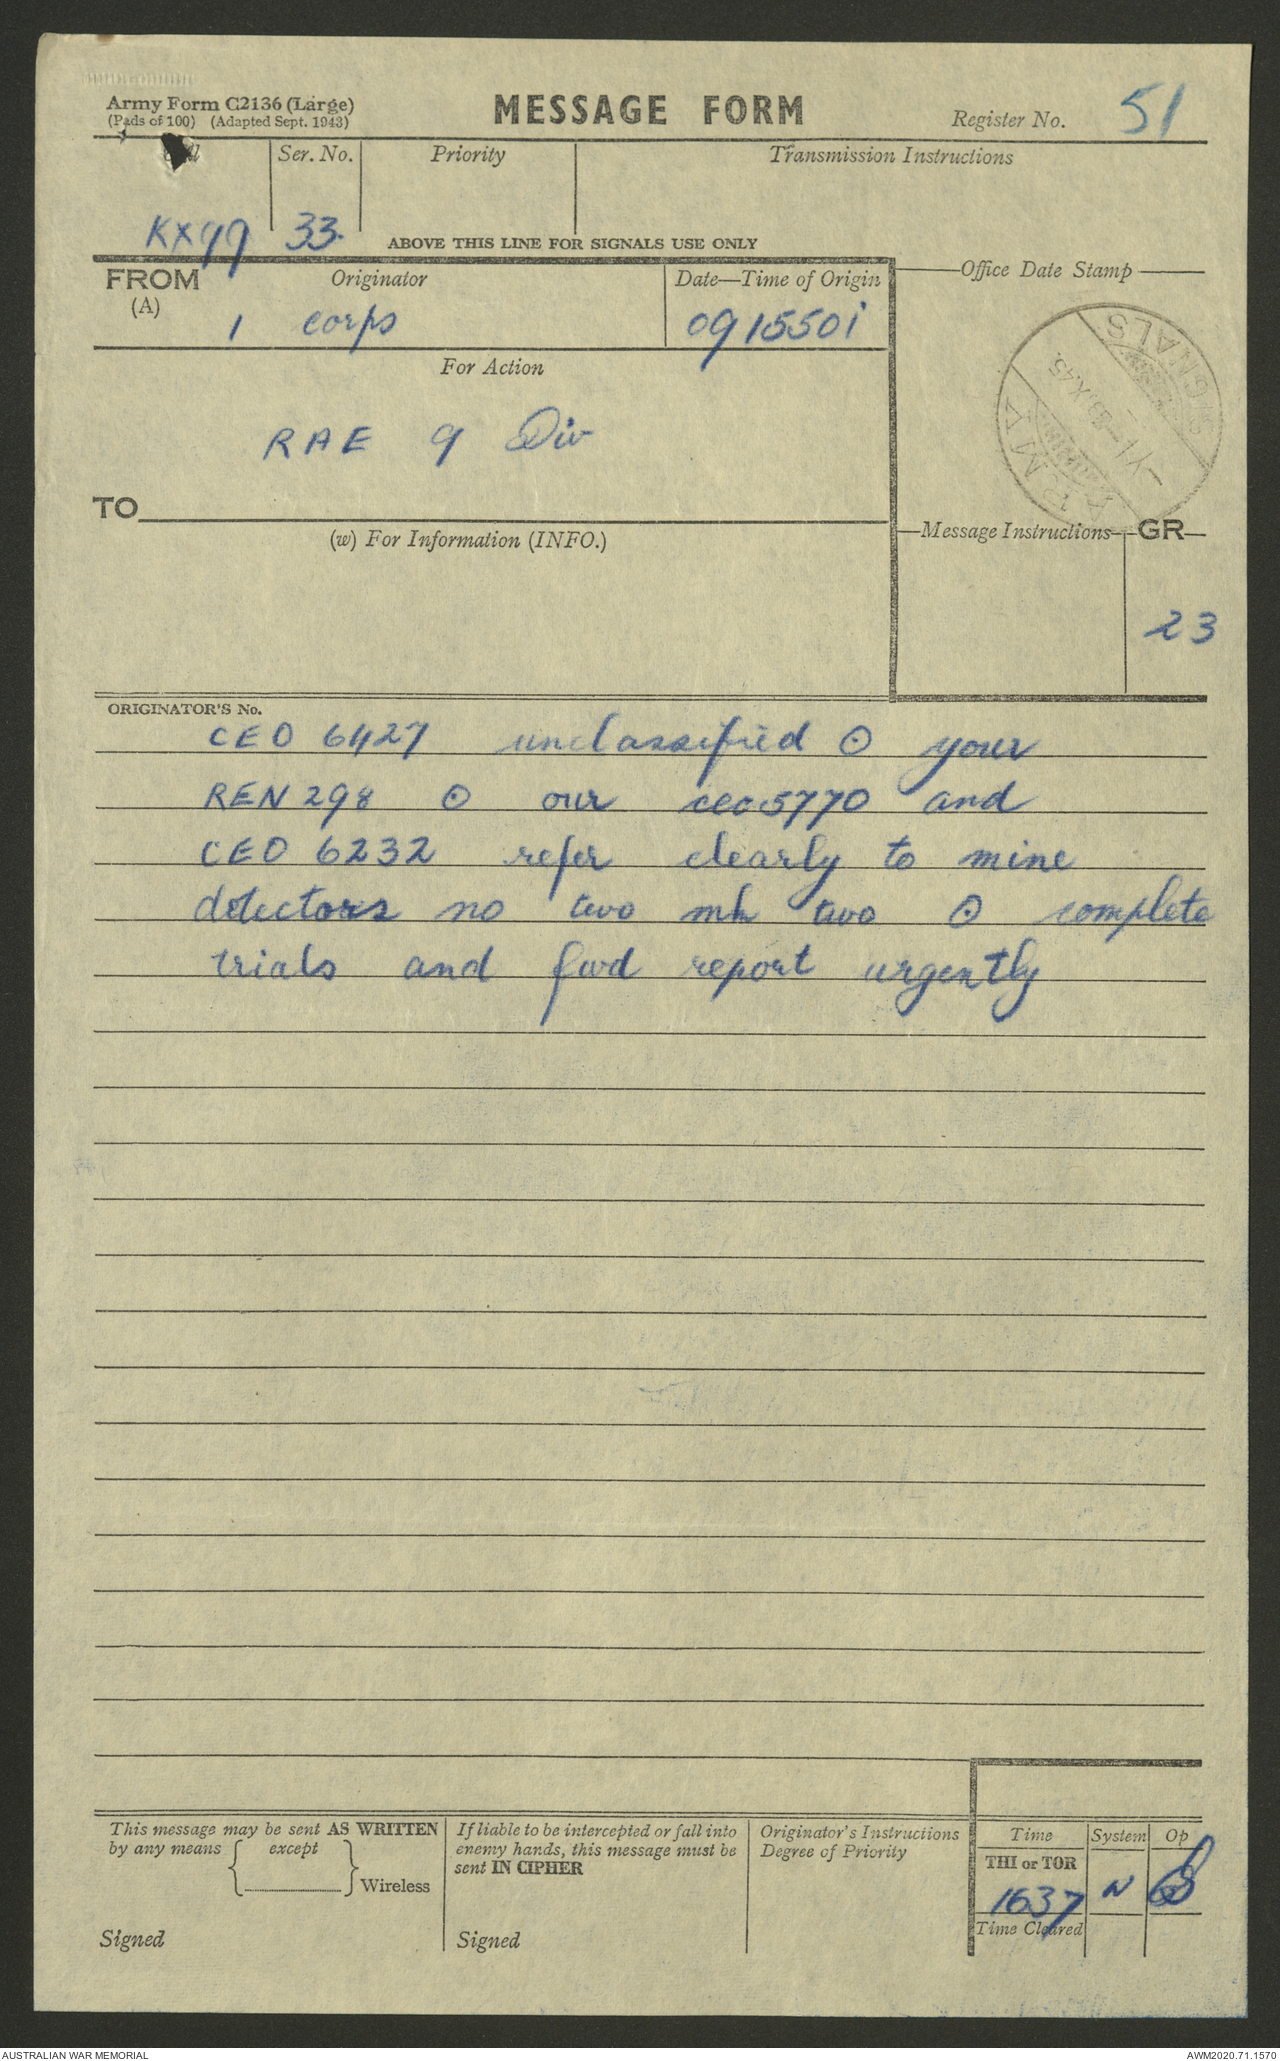 Army Form C2136 (Large)
(Pads of 100) (Adapted Sept. 1943)
MESSAGE FORM
Register No. 51
Ser. No. Priority Transmission Instructions
KX99 33.
ABOVE THIS LINE FOR SIGNALS USE ONLY
FROM Originator Date—Time of Origin Office Date Stamp
(A)
1 corps 091550i
For Action
RAE 9 Div
SIGNALS
TO
(w) For Information (INFO.)
Message Instructions GR
23
ORIGINATOR'S No.
CEO 6427 unclassified ⊙ your
REN 298 ⊙ our ceo5770 and
CEO 6232 refer clearly to mine
detectors no two mk two ⊙ complete
trials and fwd report urgently
This message may be sent AS WRITTEN
by any means { except } Wireless
Signed
If liable to be intercepted or fall into
enemy hands, this message must be
sent IN CIPHER
Signed
Originator's Instructions
Degree of Priority
Time System Op
THI or TOR
1637 N
Time Cleared
AUSTRALIAN WAR MEMORIAL AWM2020.71.1570